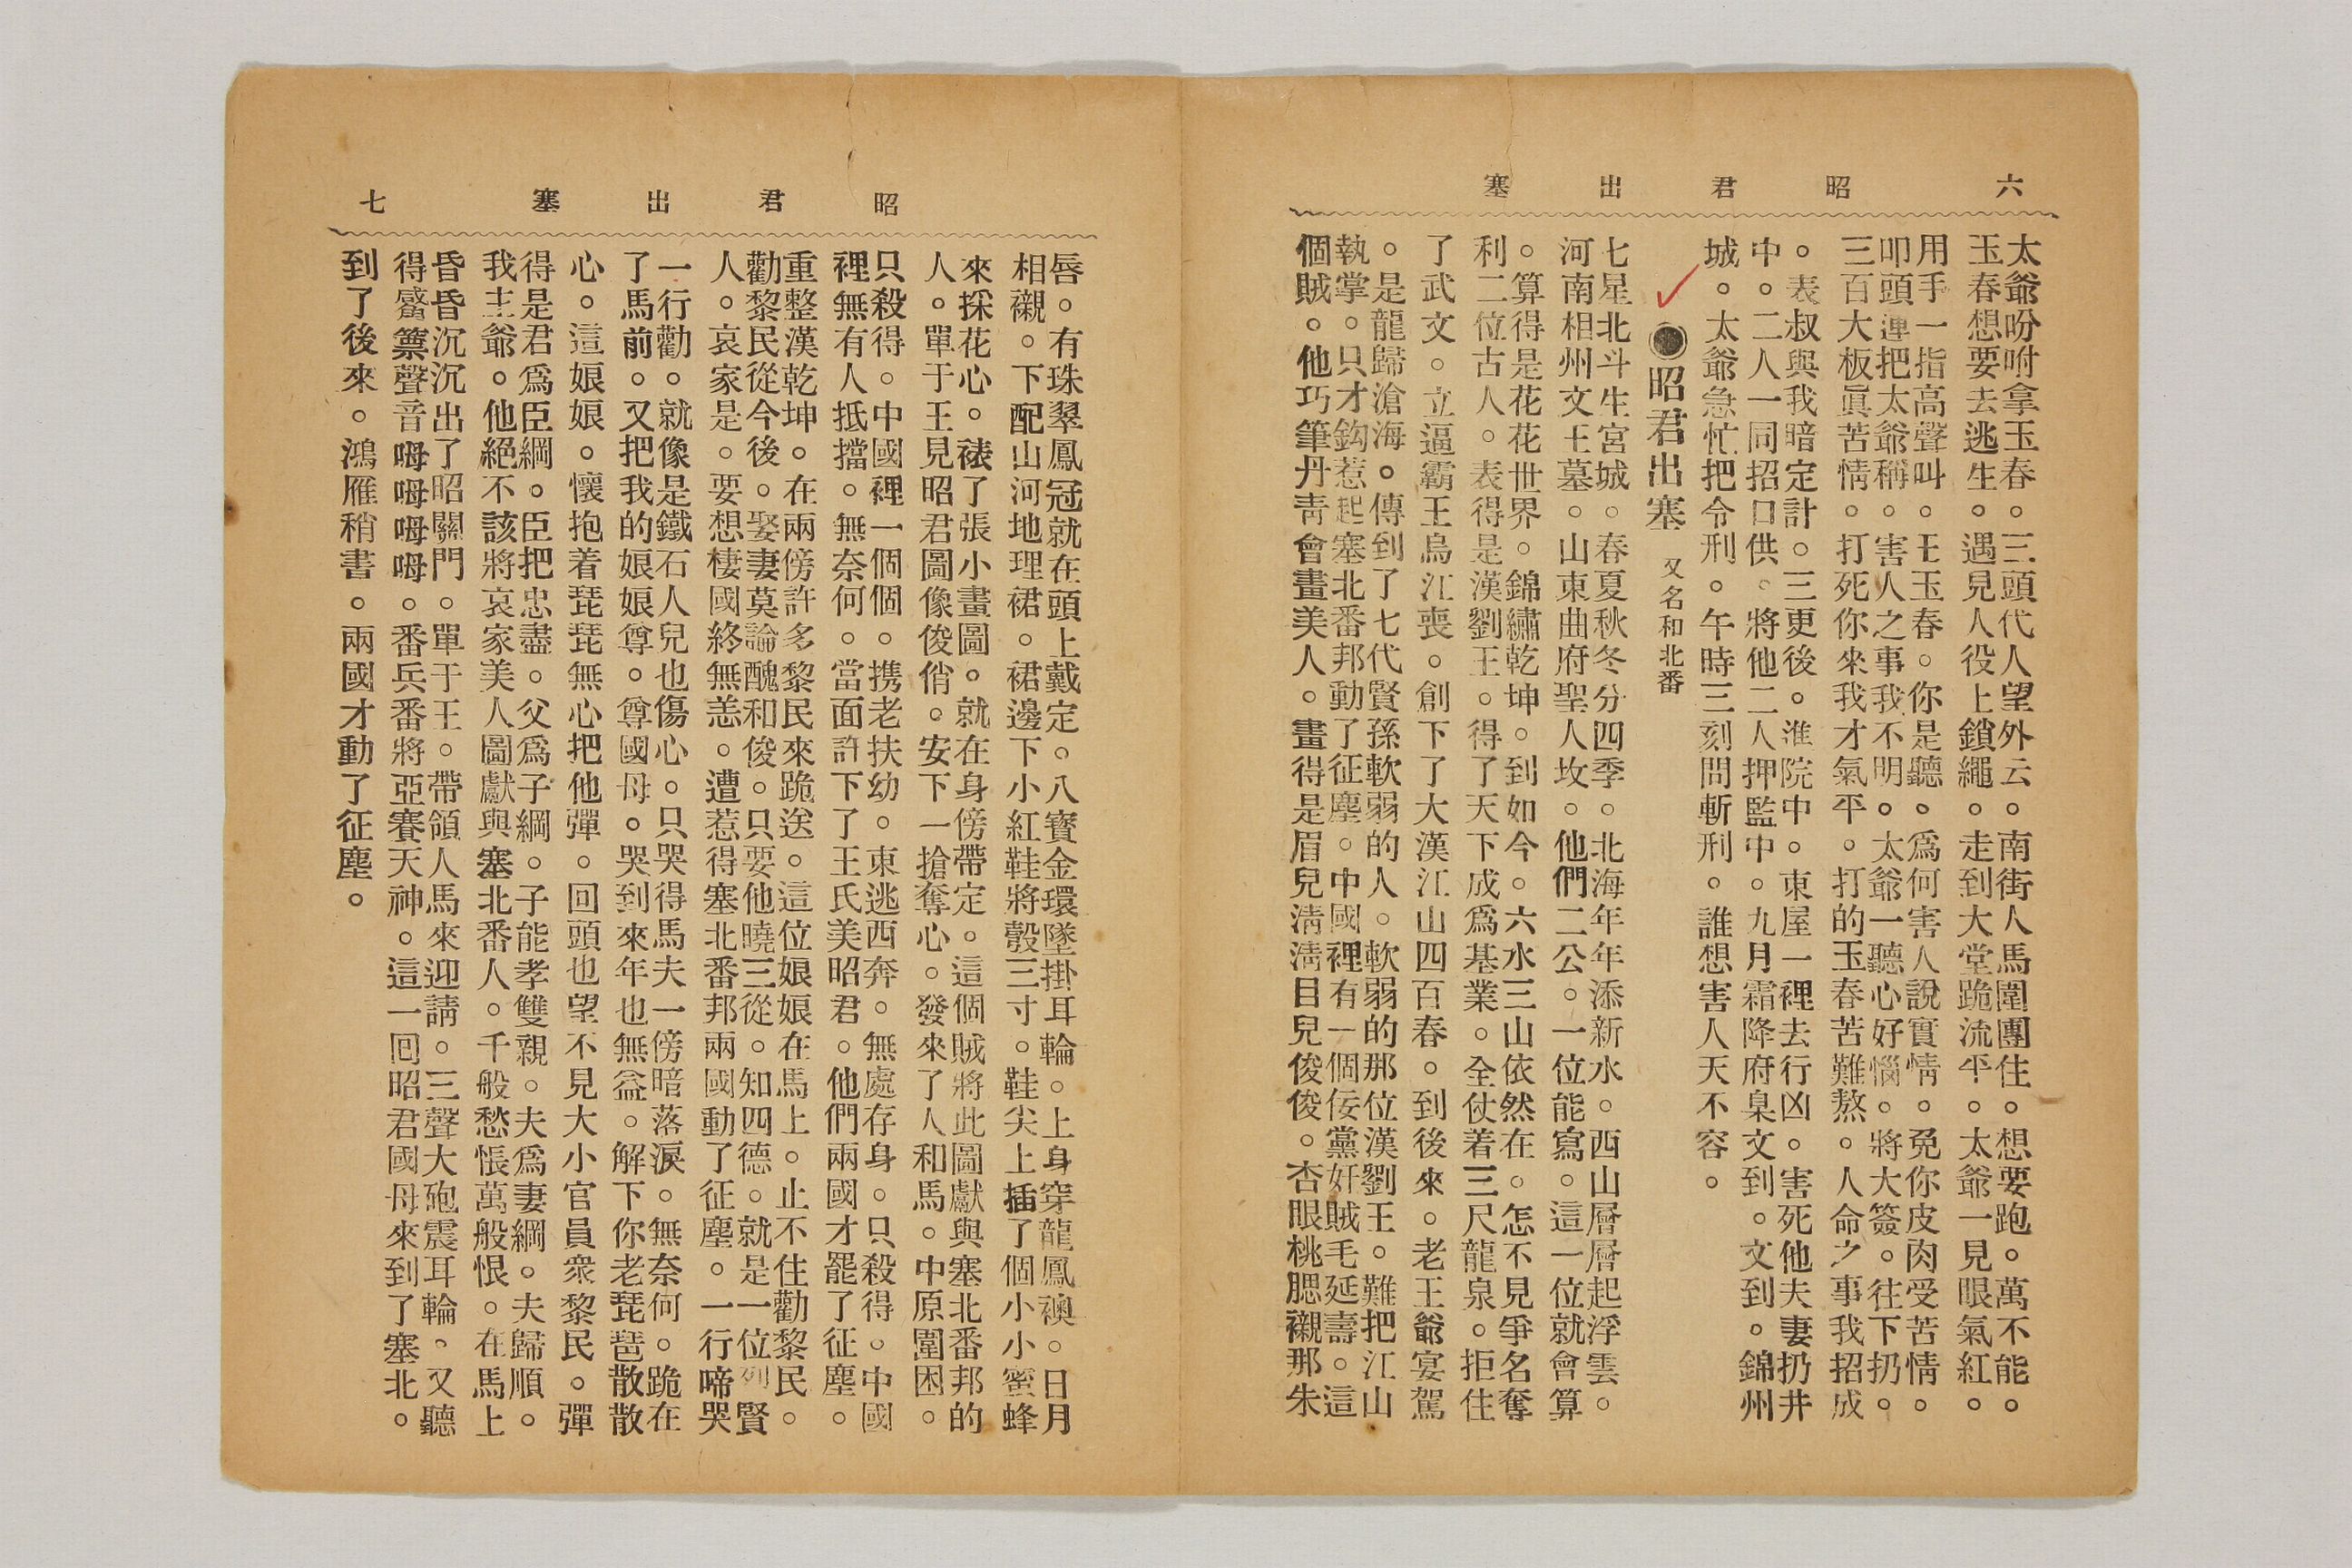 六　昭君出塞
太爺吩咐拿玉春。三頭代人望外云。南街人馬圍團住。想要跑。萬不能。
玉春想要去逃生。遇見人役上鎖繩。走到大堂跪流平。太爺一見眼氣紅。
用手一指高聲叫。王玉春。你是聽。爲何害人說實情。免你皮肉受苦情。
叩頭連把太爺稱。害人之事我不明。太爺一聽心好惱。將大簽。往下扔。
三百大板眞苦情。打死你來我才氣平。打的玉春苦難熬。人命之事我招成
。表叔與我暗定計。三更後。淮院中。東屋一裡去行凶。害死他夫妻扔井
中。二人一同招口供。將他二人押監中。九月霜降府臬文到。文到。錦州
城。太爺急忙把令刑。午時三刻問斬刑。誰想害人天不容。
●昭君出塞　又名和北番
七星北斗生宮城。春夏秋冬分四季。北海年年添新水。西山層層起浮雲。
河南相州文王墓。山東曲府聖人坟。他們二公。一位能寫。這一位就會算
。算得是花花世界。錦繡乾坤。到如今。六水三山依然在。怎不見爭名奪
利二位古人。表得是漢劉王。得了天下成爲基業。全仗着三尺龍泉。拒住
了武文。立逼霸王烏江喪。創下了大漢江山四百春。到後來。老王爺宴駕
。是龍歸滄海。傳到了七代賢孫軟弱的人。軟弱的那位漢劉王。難把江山
執掌。只才鈎惹起塞北番邦動了征塵。中國裡有一個佞黨奸賊毛延壽。這
個賊。他巧筆丹靑會畫美人。畫得是眉兒淸淸目兒俊俊。杏眼桃腮襯那朱
昭君出塞　七
唇。有珠翠鳳冠就在頭上戴定。八寳金環墜掛耳輪。上身穿龍鳳襖。日月
相襯。下配山河地理裙。裙邊下小紅鞋將彀三寸。鞋尖上插了個小小蜜蜂
來採花心。裱了張小畫圖。就在身傍帶定。這個賊將此圖獻與塞北番邦的
人。單于王見昭君圖像俊俏。安下一搶奪心。發來了人和馬。中原圍困。
只殺得。中國裡一個個。携老扶幼。東逃西奔。無處存身。只殺得。中國
裡無有人抵擋。無奈何。當面許下了王氏美昭君。他們兩國才罷了征塵。
重整漢乾坤。在兩傍許多黎民來跪送。這位娘娘在馬上。止不住勸黎民。
勸黎民從今後。娶妻莫論醜和俊。只要他曉三從。知四德。就是一位列賢
人。哀家是。要想棲國終無恙。遭惹得塞北番邦兩國動了征塵。一行啼哭
一行勸。就像是鐵石人兒也傷心。只哭得馬夫一傍暗落淚。無奈何。跪在
了馬前。又把我的娘娘尊。尊國母。哭到來年也無益。解下你老琵琶散散
心。這娘娘。懷抱着琵琵無心把他彈。回頭也望不見大小官員衆黎民。彈
得是君爲臣綱。臣把忠盡。父爲子綱。子能孝雙親。夫爲妻綱。夫歸順。
我主爺。他絕不該將哀家美人圖獻與塞北番人。千般愁悵萬般恨。在馬上
昏昏沉沉出了昭關門。單于王。帶領人馬來迎請。三聲大砲震耳輪。又聽
得觱篥聲音呣呣呣呣。番兵番將亞賽天神。這一囘昭君國母來到了塞北。
到了後來。鴻雁稍書。兩國才動了征塵。